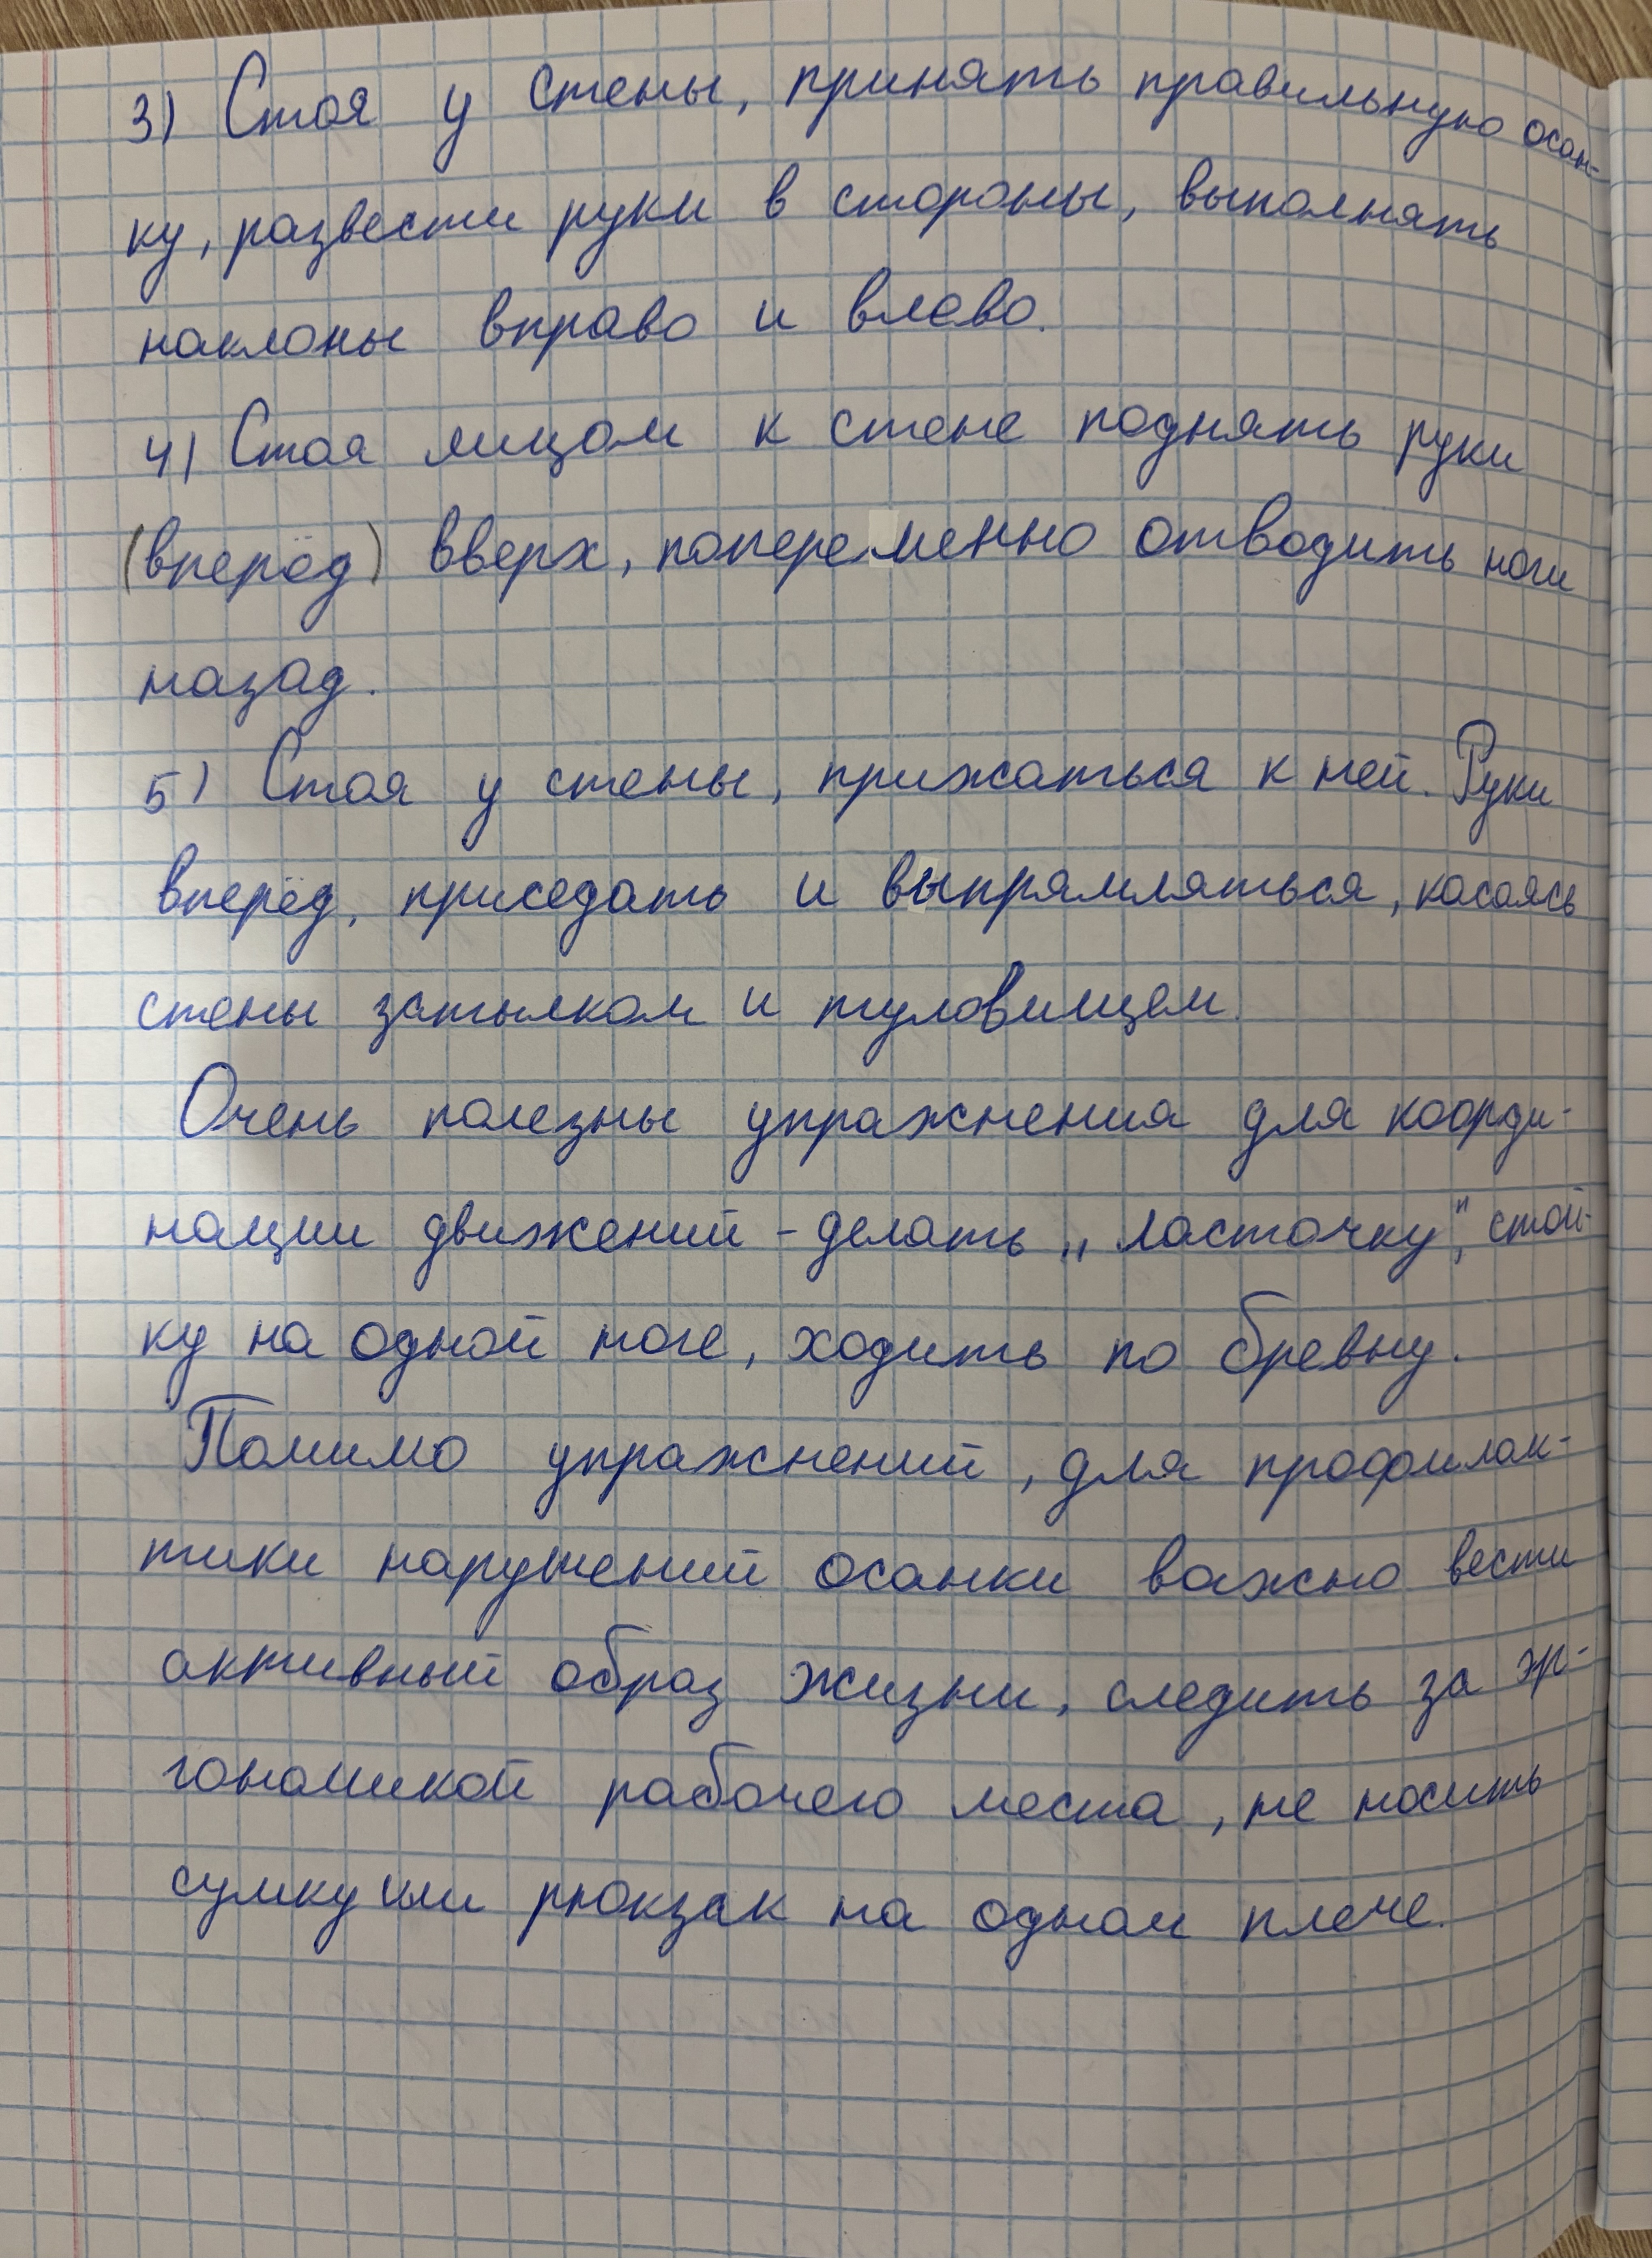 3) Стоя у стены, принять правильную осан-
ку, развести руки в стороны, выполнять
наклоны вправо и влево.
4) Стоя лицом к стене поднять руки
(вперёд) вверх, попеременно отводить ноги
назад.
5) Стоя у стены, прижаться к ней. Руки
вперёд, приседать и выпрямляться, касаясь
стены затылком и туловищем.
Очень полезны упражнения для коорди-
нации движений - делать „ласточку", стой-
ку на одной ноге, ходить по бревну.
Помимо упражнений, для профилак-
тики нарушений осанки важно вести
активный образ жизни, следить за эр-
гономикой рабочего места, не носить
сумку или рюкзак на одном плече.